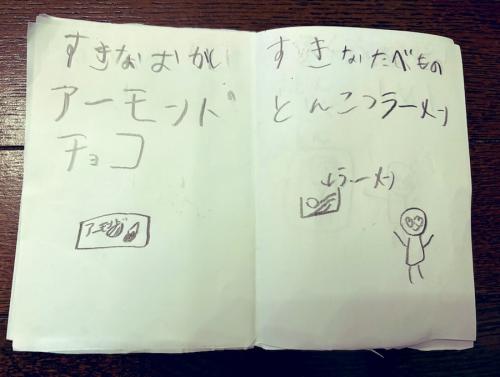 すきなおかし
アーモンドの
チョコ
アーモンド
すきなたべもの
とんこつラーメン
↓ラーメン